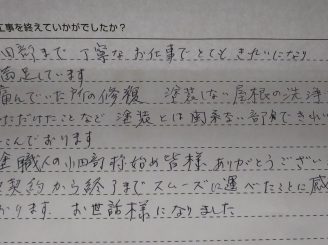 工事を終えていかがでしたか？
細部まで丁寧なお仕事でとてもきれいになり
満足しています
痛んでいた所の修復 塗装しない屋根の洗浄
ただけたことなど 塗装とは関係ない部分できれい
こんでおります
塗職人の小田部様始め皆様 ありがとうござい
契約から終了までスムーズに運べたことに感
おります. お世話様になりました